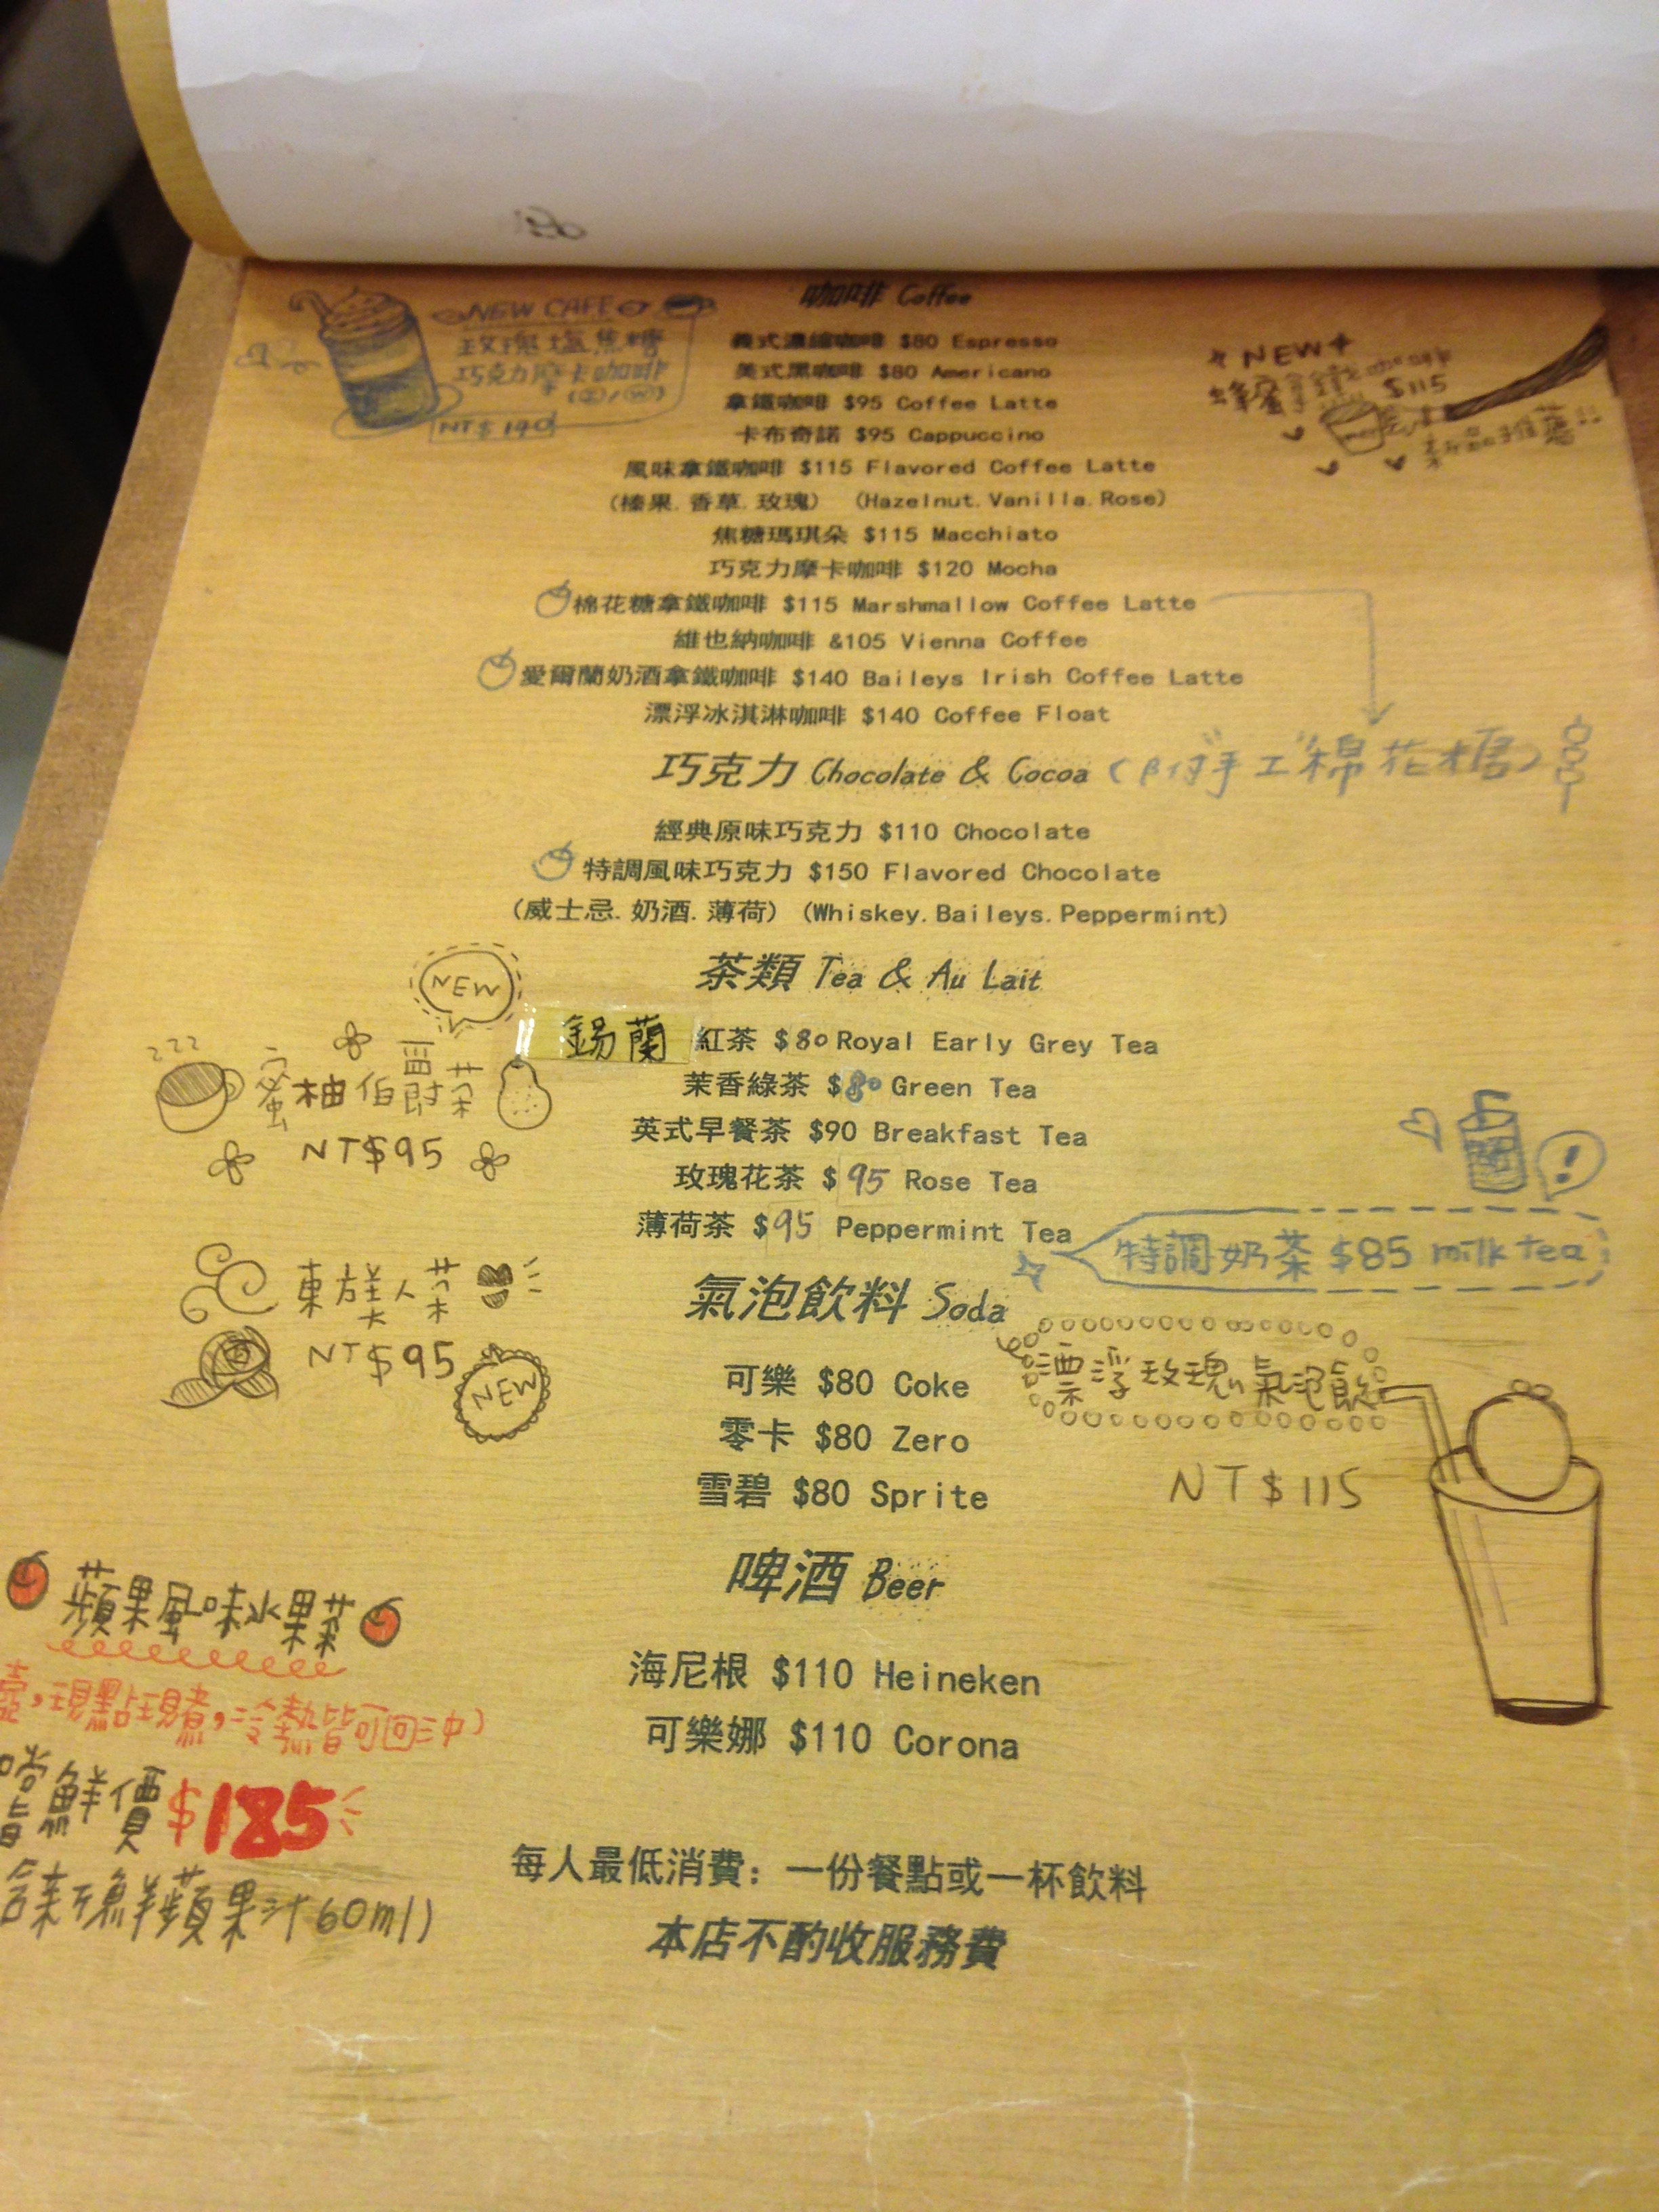 咖啡 Coffee
NEW CAFE
玫瑰塩焦糖
巧克力摩卡咖啡
NT$140
NEW
$115
新品推薦!!
義式濃縮咖啡 $80 Espresso
美式黑咖啡 $80 Americano
拿鐵咖啡 $95 Coffee Latte
卡布奇諾 $95 Cappuccino
風味拿鐵咖啡 $115 Flavored Coffee Latte
(榛果.香草.玫瑰) (Hazelnut.Vanilla.Rose)
焦糖瑪琪朵 $115 Macchiato
巧克力摩卡咖啡 $120 Mocha
棉花糖拿鐵咖啡 $115 Marshmallow Coffee Latte
維也納咖啡 &105 Vienna Coffee
愛爾蘭奶酒拿鐵咖啡 $140 Baileys Irish Coffee Latte
漂浮冰淇淋咖啡 $140 Coffee Float
巧克力 Chocolate & Cocoa (附"手工"棉花糖)
經典原味巧克力 $110 Chocolate
特調風味巧克力 $150 Flavored Chocolate
(威士忌.奶酒.薄荷) (Whiskey.Baileys.Peppermint)
茶類 Tea & Au Lait
錫蘭紅茶 $80 Royal Early Grey Tea
茉香綠茶 $80 Green Tea
英式早餐茶 $90 Breakfast Tea
玫瑰花茶 $95 Rose Tea
薄荷茶 $95 Peppermint Tea
NEW
蜜柚伯爵茶
NT$95
特調奶茶 $85 milk tea
東方美人茶
NT$95
NEW
氣泡飲料 Soda
可樂 $80 Coke
零卡 $80 Zero
雪碧 $80 Sprite
漂浮玫瑰氣泡飲
NT$115
啤酒 Beer
海尼根 $110 Heineken
可樂娜 $110 Corona
蘋果風味水果茶
壺,現點現煮,冷熱皆可回沖)
嚐鮮價 $185
新鮮蘋果汁60ml)
每人最低消費: 一份餐點或一杯飲料
本店不酌收服務費